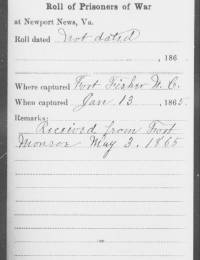 Roll of Prisoners of War
at Newport News, Va.
Roll dated Not dated
, 186
Where captured Fort Fisher N. C.
When captured Jan 13, 1865.
Remarks:
Received from Fort
Monroe May 3, 1865